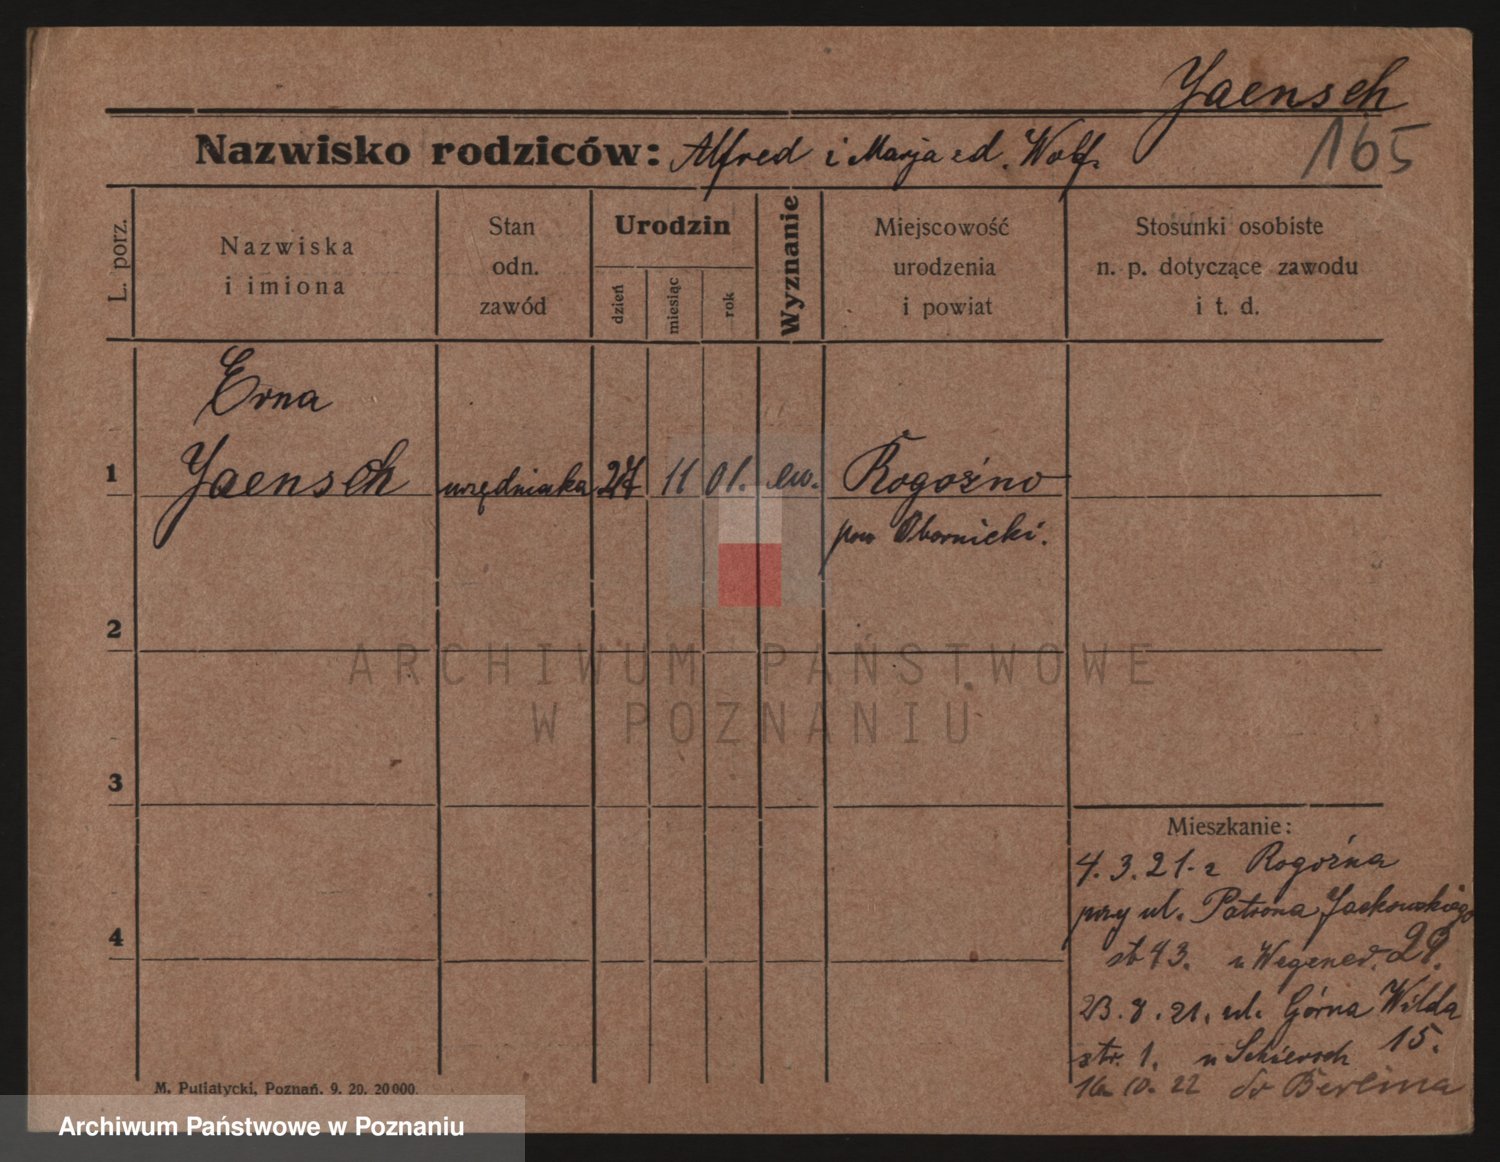 Jaensch
165
Nazwisko rodziców: Alfred i Marja zd. Wolf.
L. porz.
Nazwiska
i imiona
Stan
odn.
zawód
Urodzin
dzień
miesiąc
rok
Wyznanie
Miejscowość
urodzenia
i powiat
Stosunki osobiste
n. p. dotyczące zawodu
i t. d.
Erna
1 Jaensch urzędniczka 27 11 01. ew. Rogoźno
pow Obornicki.
2
ARCHIWUM PAŃSTWOWE
W POZNANIU
3
4
Mieszkanie:
4. 3. 21. z Rogoźna
przy ul. Patrona Jackowskiego
u Wegener. 28.
23. 8. 21. ul. Górna Wilda
str. 1. u 15.
10. 22 do Berlina
M. Putiatycki, Poznań. 9. 20. 20 000.
Archiwum Państwowe w Poznaniu